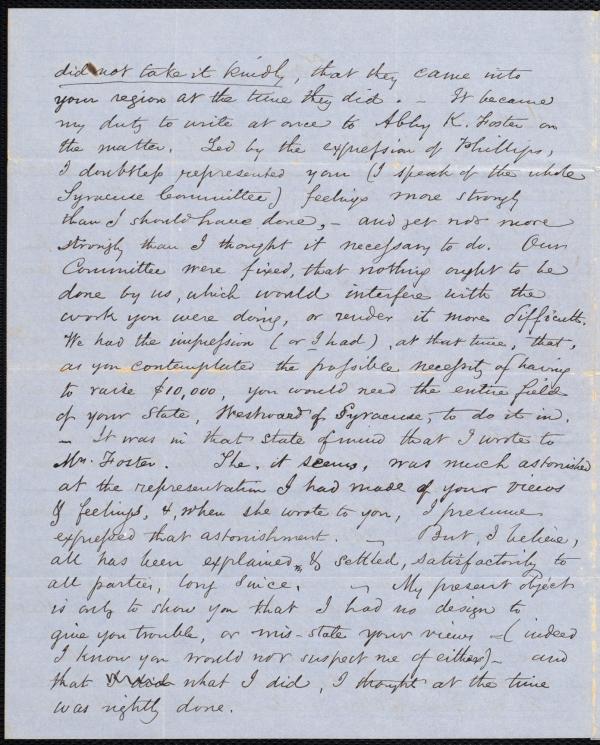 did not take it kindly, that they came into
your region at the time they did. – It became
my duty to write at once to Abby K. Foster on
the matter. Led by the expression of Phillips,
I doubtless represented your (I speak of the whole
Syracuse Committee) feelings more strongly
than I should have done, – and yet not more
strongly than I thought it necessary to do. Our
Committee were fixed, that nothing ought to be
done by us, which would interfere with the
work you were doing, or render it more difficult.
We had the impression (or I had), at that time, that,
as you contemplated the possible necessity of having
to raise $10,000, you would need the entire field
of your State, Westward of Syracuse, to do it in.
– It was in that state of mind that I wrote to
Mrs. Foster. She, it seems, was much astonished
at the representation I had made of your views
& feelings, &, when she wrote to you, I presume
expressed that astonishment. – But, I believe,
all has been explained, & settled, satisfactorily to
all parties, long since. – My present object
is only to show you that I had no design to
give you trouble, or mis-state your views – (indeed
I know you would not suspect me of either) – and
that what I did, I thought at the time
was rightly done.